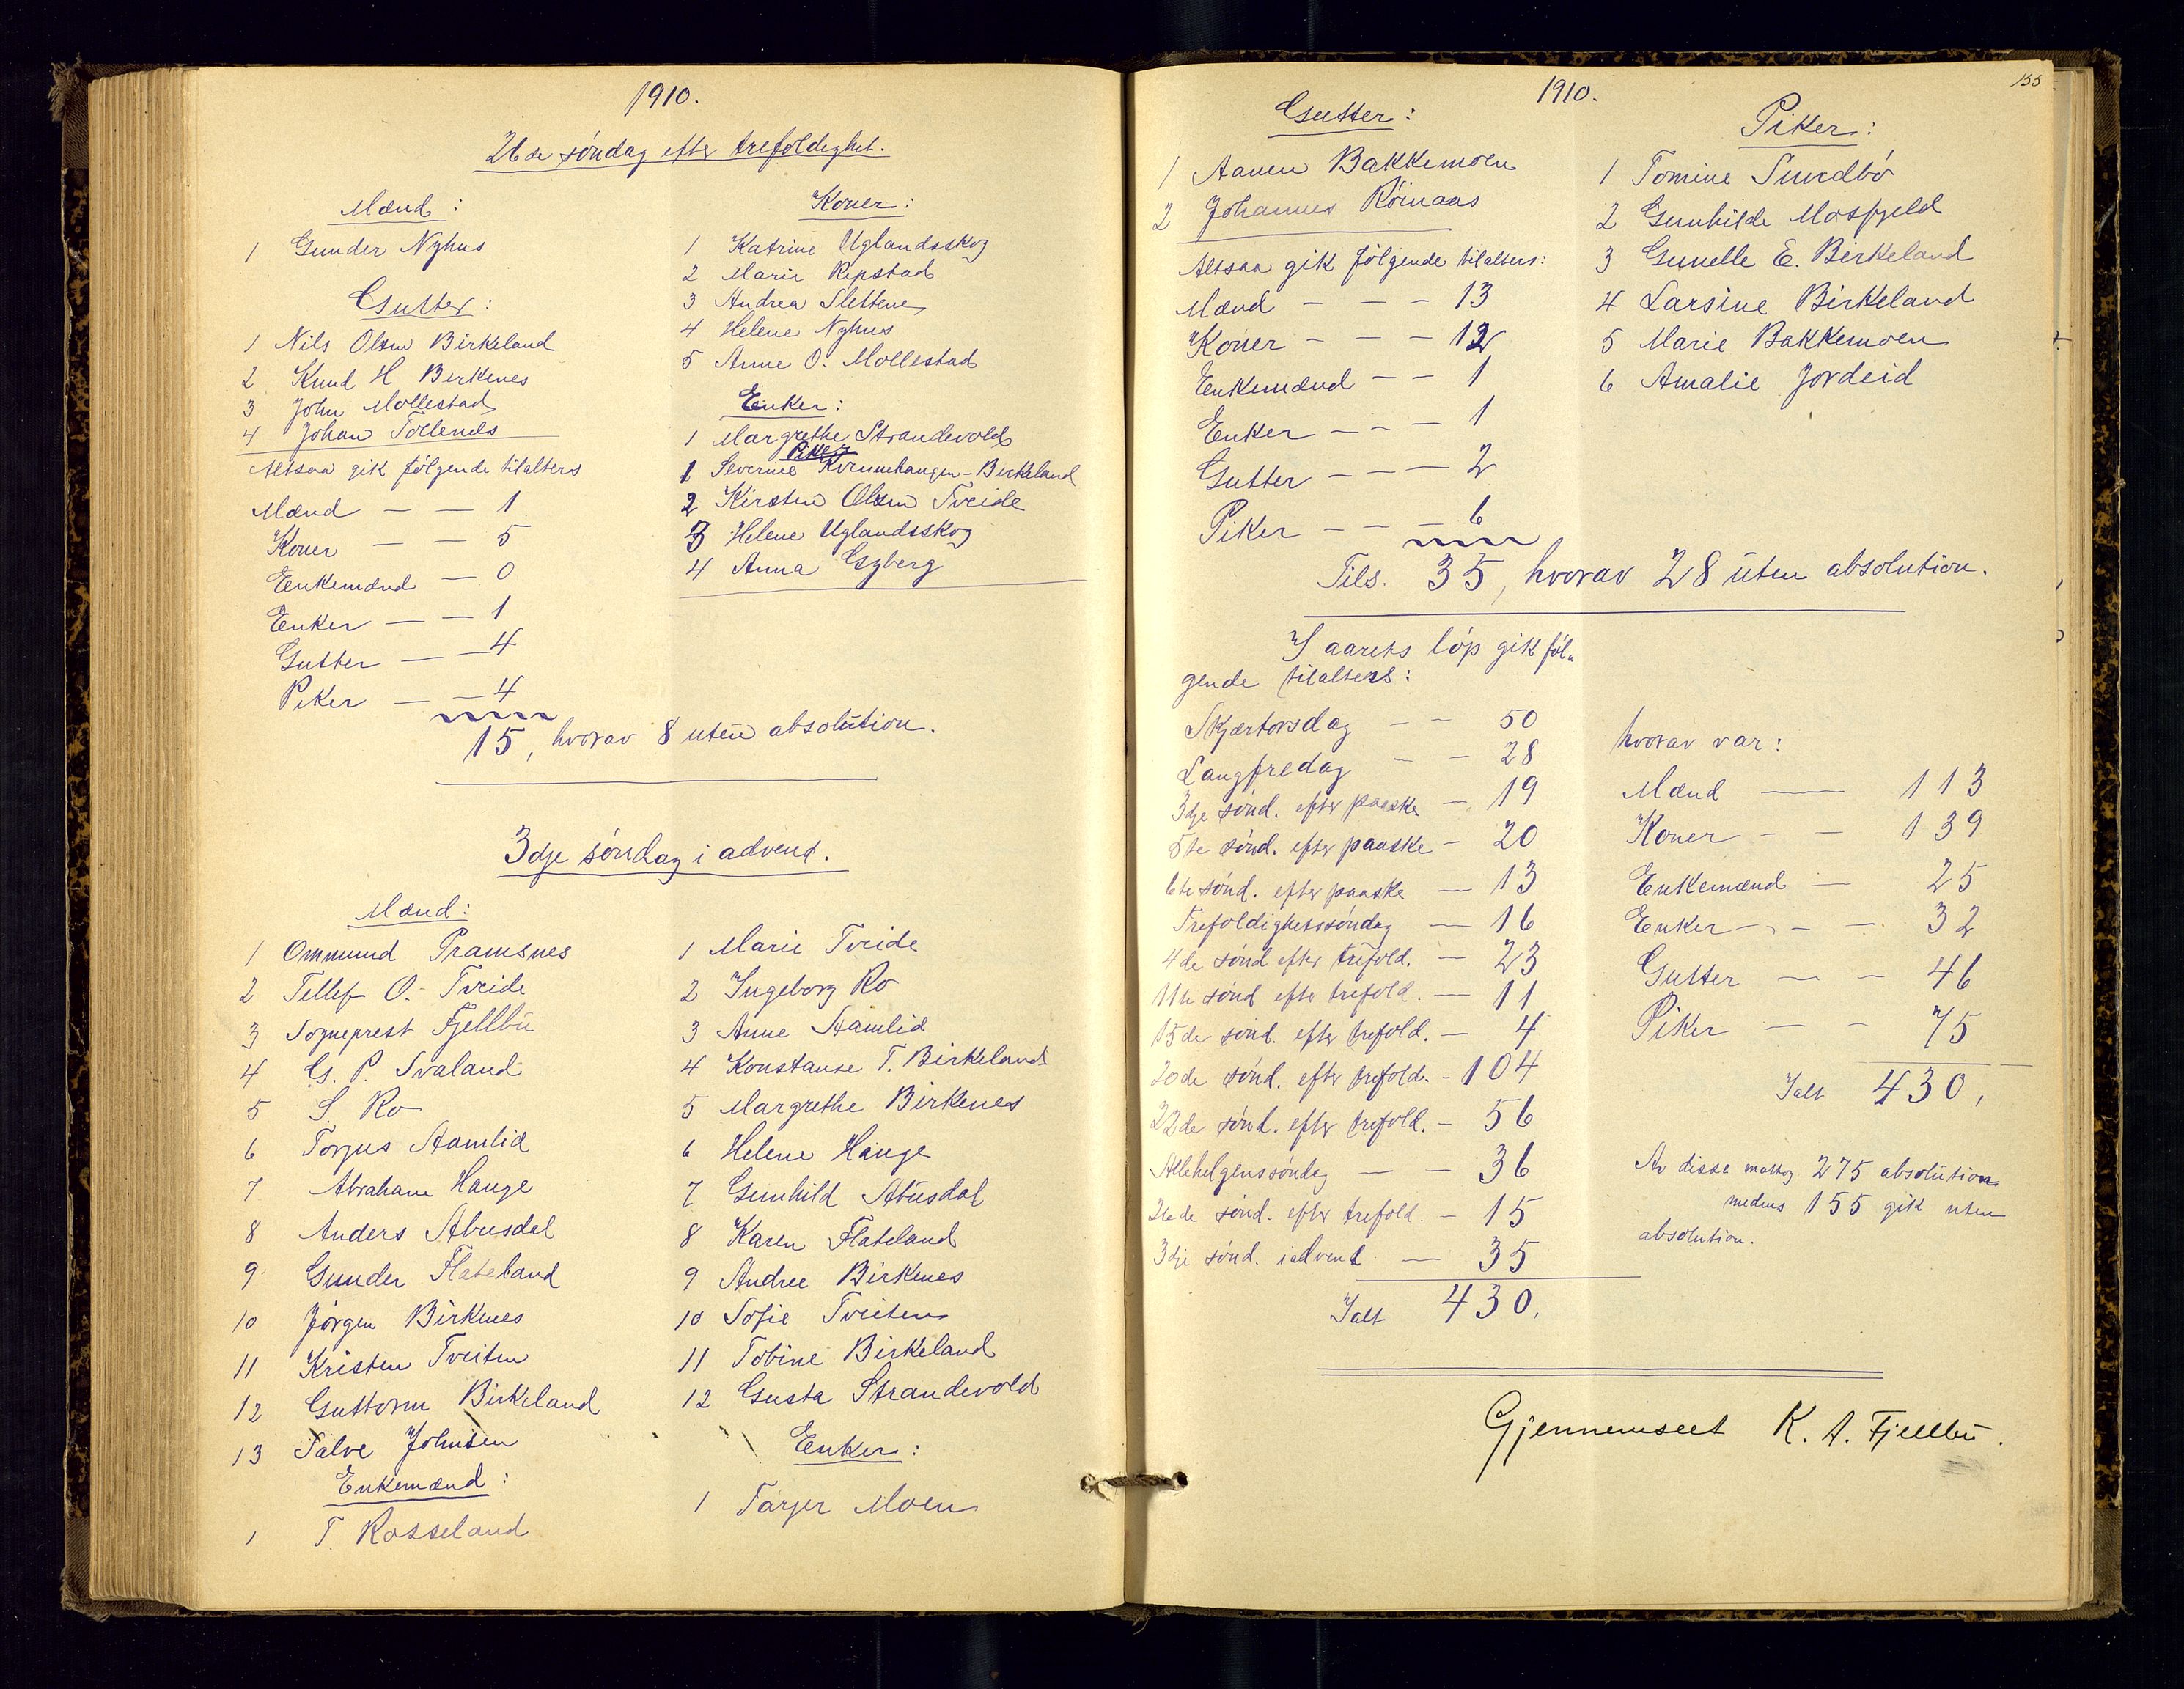 1910.
26de søndag efter trefoldighet.
Mænd:
1 Gunder Nyhus
Gutter:
1 Nils Olsen Birkeland
2 Knud H. Birkenes
3 John Mollestad
4 Johan Tollenes
Altsaa gik følgende tilalters
Mænd — — 1
Koner — — 5
Enkemænd — 0
Enker — — 1
Gutter — — 4
Piker — — 4
15, hvorav 8 uten absolution.
Koner:
1 Katrine Uglandsskog
2 Marie Repstad
3 Andrea Slettene
4 Helene Nyhus
5 Anne O. Mollestad
Enker:
1 Margrethe Strandevold
Piker
1 Severine - Birkeland
2 Kirsten Olsen Tveide
3 Helene Uglandsskog
4 Anna Esyberg
3dje søndag i advent.
Mænd:
1 Ommund Pramsnes
2 Tellef O. Tveide
3 Sogneprest Fjellbu
4 G. P. Svaland
5 S. Ro
6 Torjus Aamlid
7 Abraham Hauge
8 Anders Abusdal
9 Gunder Flateland
10 Jørgen Birkenes
11 Kristen Tveiten
12 Guttorm Birkeland
13 Salve Johnsen
Enkemænd:
1 T. Rosseland
1 Marie Tveide
2 Ingeborg Ro
3 Anne Aamlid
4 Konstanse T. Birkeland
5 Margrethe Birkenes
6 Helene Hauge
7 Gunhild Abusdal
8 Karen Flateland
9 Andree Birkenes
10 Sofie Tveiten
11 Tobine Birkeland
12 Gusta Strandevold
Enker:
1 Tarjer Moen
1910.
155
Gutter:
1 Aanen Bakkemoen
2 Johannes Røinaas
Altsaa gik følgende tilalters:
Mænd — — — 13
Koner — — — 12
Enkemænd — — 1
Enker — — — 1
Gutter — — — 2
Piker — — — 6
Tils. 35, hvorav 28 uten absolution.
Piker:
1 Tomine Sundbø
2 Gunhilde Mosfjeld
3 Gunelle E. Birkeland
4 Larsine Birkeland
5 Marie Bakkemoen
6 Amalie Jordeid
I aarets løp gik føl-
gende tilalters:
Skjærtorsdag — — 50
Langfredag — — 28
3dje sønd. efter paaske — 19
5te sønd. efter paaske — 20
6te sønd. efter paaske — 13
Trefoldighetssøndag — 16
4de sønd efter trefold. — 23
11te sønd efter trefold. — 11
15de sønd. efter trefold. — 4
20de sønd. efter trefold. - 104
22de sønd. efter trefold. — 56
Allehelgenssøndag — — 36
26de sønd. efter trefold. — 15
3dje sønd. i advent — 35
Ialt 430.
hvorav var:
Mænd — 113
Koner — — 139
Enkemænd — 25
Enker — — — 32
Gutter — — 46
Piker — — 75
Ialt 430,
Av disse mottog 275 absolution
medens 155 gik uten
absolution.
Gjennemseet K. A. Fjellbu.